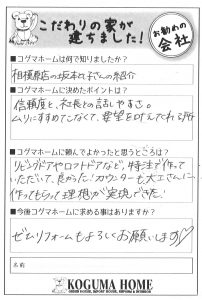 こだわりの家が
建ちました!
お勧めの
会社
■コグマホームは何で知りましたか?
相模原店の坂本れ子さんの紹介
■コグマホームに決めたポイントは?
信頼度と、社長との話しやすさ。
ムリにすすめてこなくて、要望をきいてくれる所
■コグマホームに頼んでよかったと思うところは?
リビングドアやロフトドアなど、特注で作って
いただいて、良かった!カウンターも大工さんに
作ってもらって理想が実現できた!
■今後コグマホームに求める事はありますか?
ぜひリフォームもよろしくお願いします♡
名前
KOGUMA HOME